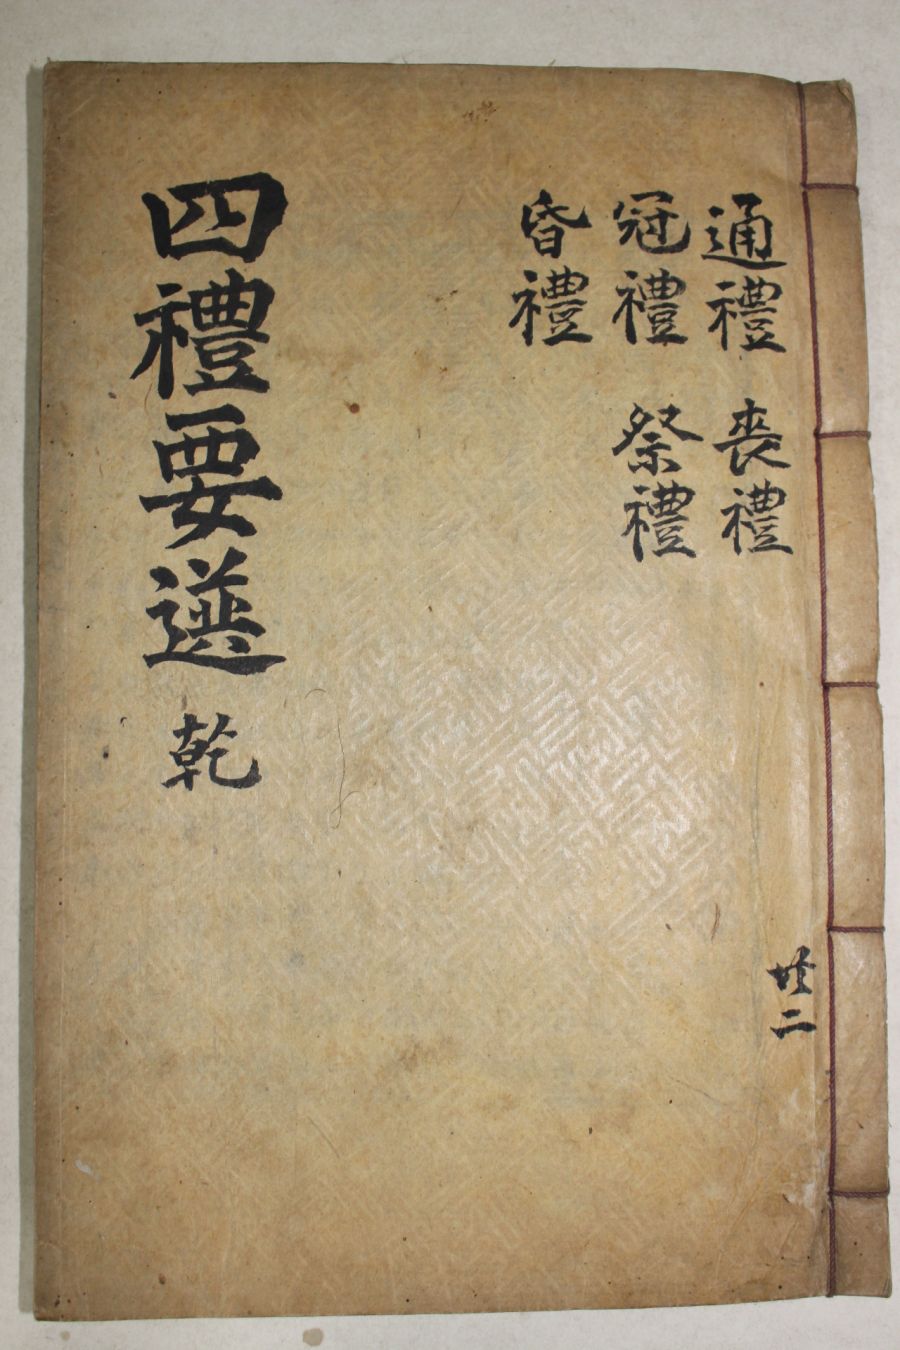 通禮 喪禮
冠禮 祭禮
昏禮
四禮要選 乾
共二